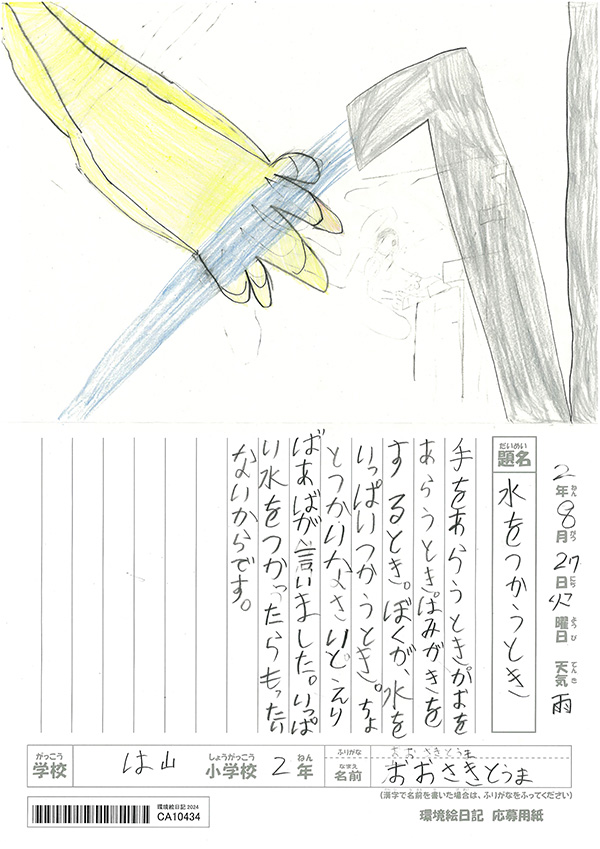 2年8月27日火曜日 天気雨
ねん がつ にち ようび てんき
だいめい
題名 水をつかうとき
手をあらうときかおを
あらうとき。はみがきを
するとき。ぼくが、水を
いっぱいつかうとき。ちょ
とつかいなさいと、えり
ばあばが言いました。いっぱ
い水をつかったらもったい
ないからです。
がっこう しょうがっこう ねん ふりがな おおさきとうま
学校 は山 小学校 2年 なまえ 名前 おおさきとうま
(漢字で名前を書いた場合は、ふりがなをふってください)
環境絵日記2024
CA10434
環境絵日記 応募用紙